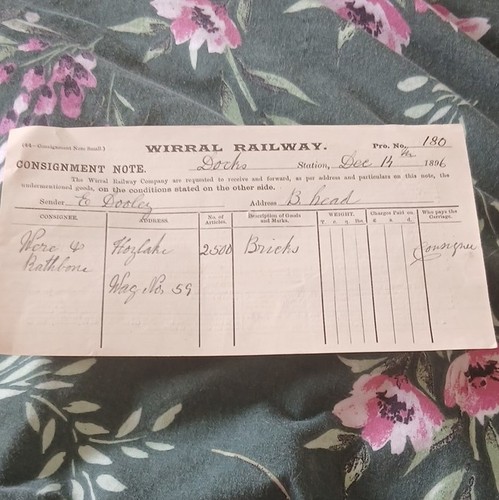 (84—Consignment Note Small.) WIRRAL RAILWAY. Pro. No. 180
CONSIGNMENT NOTE. Docks Station, Dec 14th 1896
The Wirral Railway Company are requested to receive and forward, as per address and particulars on this note, the
undermentioned goods, on the conditions stated on the other side.
Sender, E Dooley Address B. head
CONSIGNEE. ADDRESS. No. of Articles. Description of Goods and Marks. WEIGHT. Charges Paid on. Who pays the Carriage.
T. c. q. lbs £ s. d.
Were & Hoylake 2500 Bricks Consignee
Rathbone
Wag No. 59